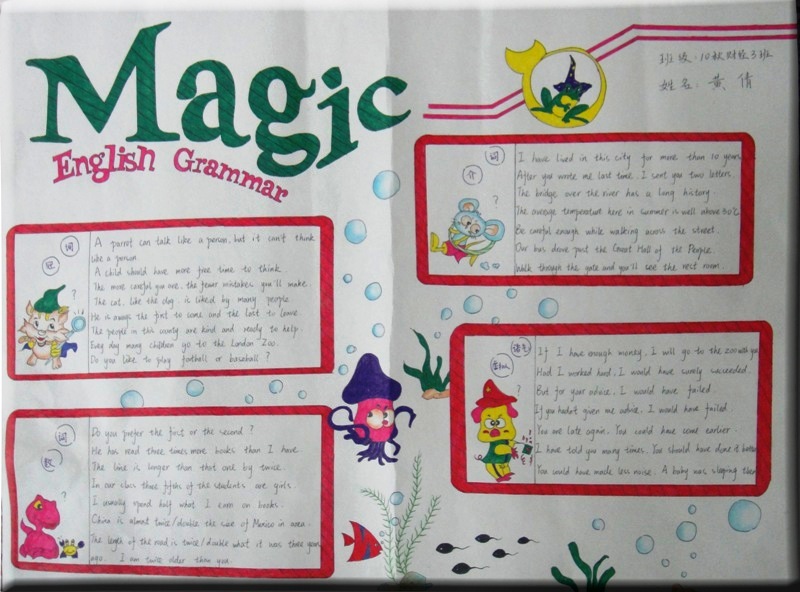 Magic
English Grammar
班级：10秋财经3班
姓名：黄倩
冠词
?
A parrot can talk like a person, but it can't think
like a person
A child should have more free time to think
The more careful you are, the fewer mistakes you'll make.
The cat, like the dog, is liked by many people
He is always the first to come and the last to leave
The people in this county are kind and ready to help
Evey day many children go to the London Zoo.
Do you like to play football or baseball ?
介词
?
I have lived in this city for more than 10 years
After you wrote me last time, I sent you two letters
The bridge over the river has a long history.
The average temperature here in summer is well above 30℃
Be careful enough while walking across the street.
Our bus drove past the Great Hall of the People.
Walk though the gate and you'll see the rest room.
数词
?
Do you prefer the first or the second ?
He has read three times more books than I have
The line is longer than that one by twice.
In our class three fifths of the students are girls.
I usually spend half what I earn on books.
China is almost twice/double the size of in area.
The length of the road is twice/double what it was three years
ago. I am twice older than you.
虚拟语气
?
If I have enough money, I will go to the zoo with you
Had I worked hard, I would have surely succeeded.
But for your advice, I would have failed.
If you hadn't given me advice, I would have failed
You are late again. You could have come earlier.
I have told you many times. You should have done it better
You could have made less noise. A baby was sleeping then